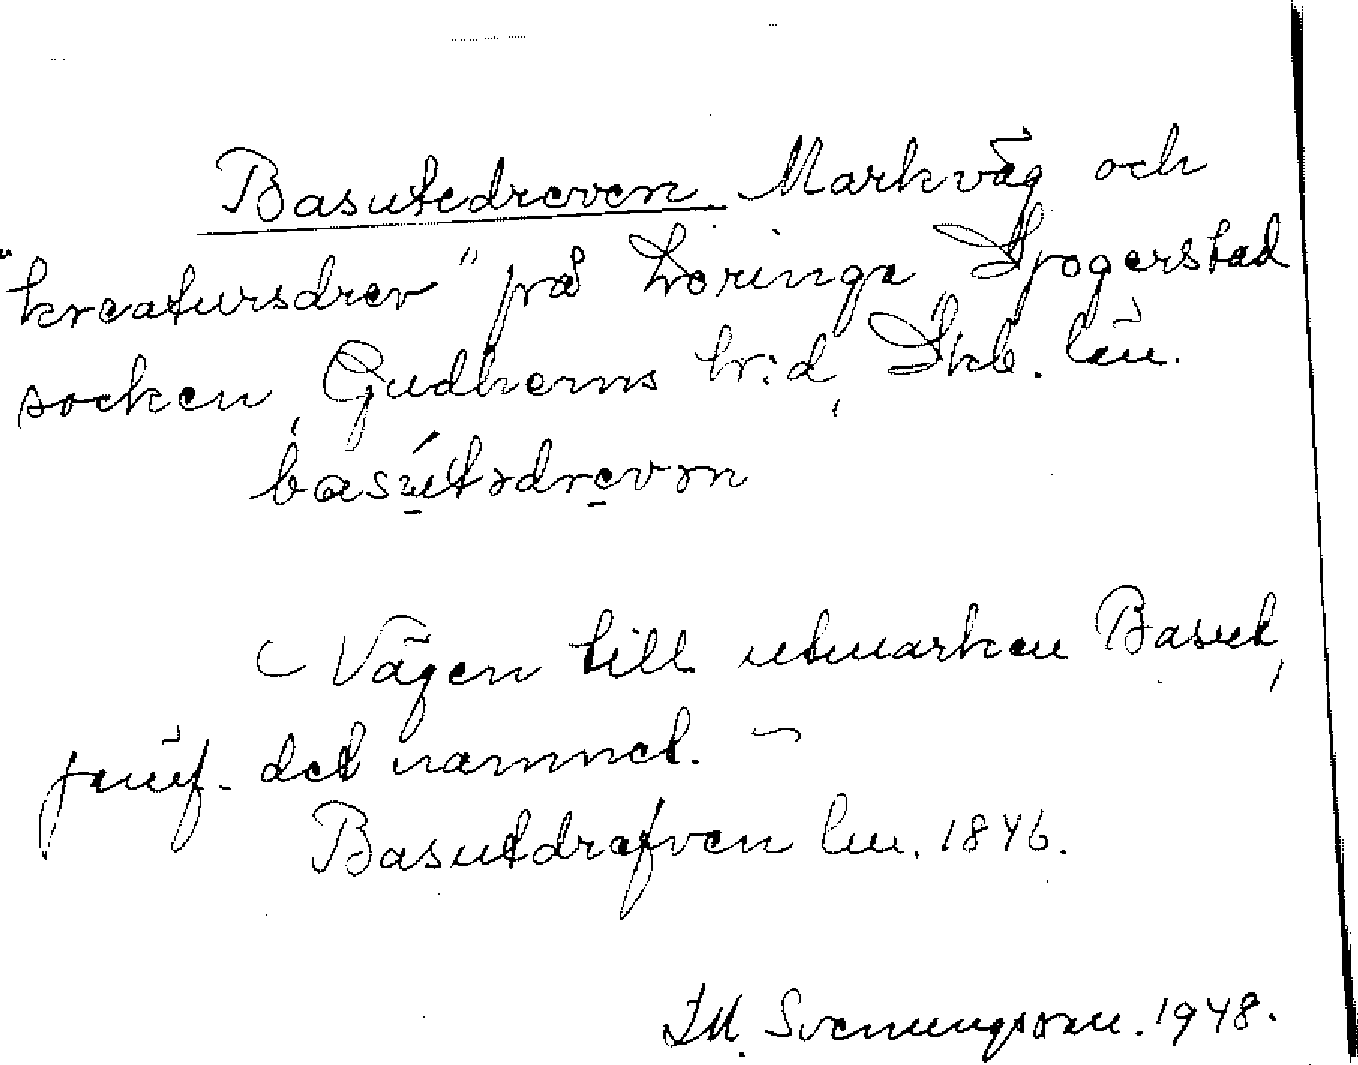 Basutedreven. Markväg och
"kreatursdrev" på Loringa, Spogerstad
socken, Gudhems h:d, Skb. län.
basútədrevən
Vägen till utmarken Basut,
jämf. det namnet.
Basutdrefven lm. 1846.
I.M. Svenungsson. 1948.